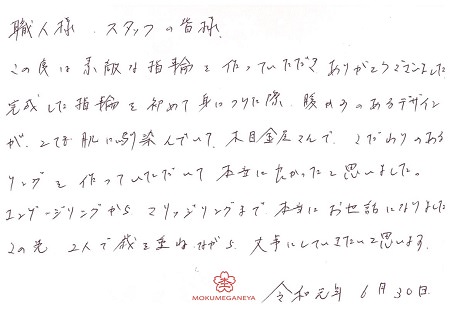 職人様 スタッフの皆様
この度は素敵な指輪を作っていただき ありがとうございました
完成した指輪を初めて身につけた際、暖かみのあるデザイン
が、とても肌に馴染んでいて、木目金屋さんで、こだわりのある
リングを作っていただいて 本当に良かったと思いました。
エンゲージリングから マリッジリングまで 本当にお世話になりました
この先 2人で歳を重ねながら、大事にしていきたいと思います。
MOKUMEGANEYA
令和元年 6月30日